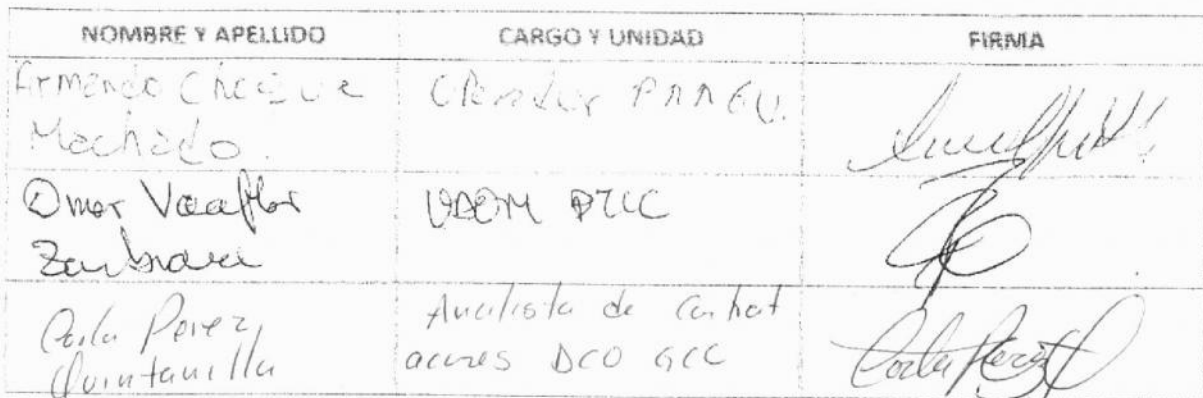 NOMBRE Y APELLIDO CARGO Y UNIDAD FIRMA
Armando Choque
Machado.
Operador
Omar Vacaflor
Zambrana
DTIC
Carla Perez
Quintanilla
Analista de Contrat
aciones DCO GCC
Carla Perez